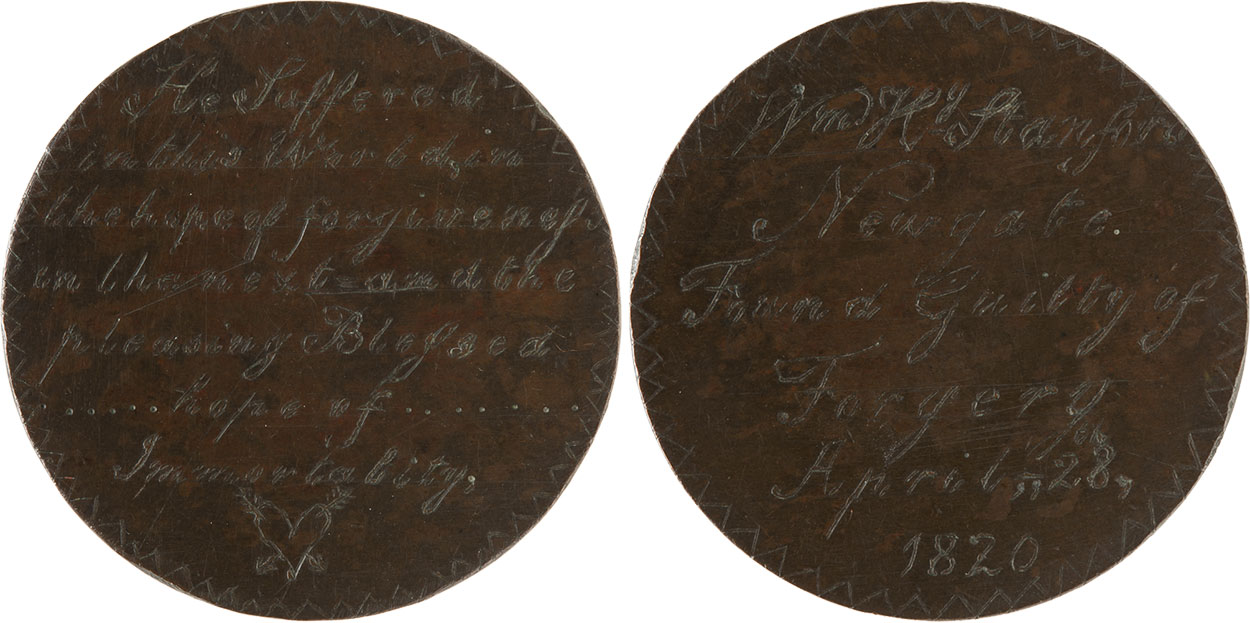 He Suffered
in this World, in
the hope of forgivenefs
in the next = and the
pleasing Blefsed
......hope of ...........
Immortality,
Wm. Hy. Stanford
Newgate.
Found Guilty of
Forgery
April,, 28th,
1820